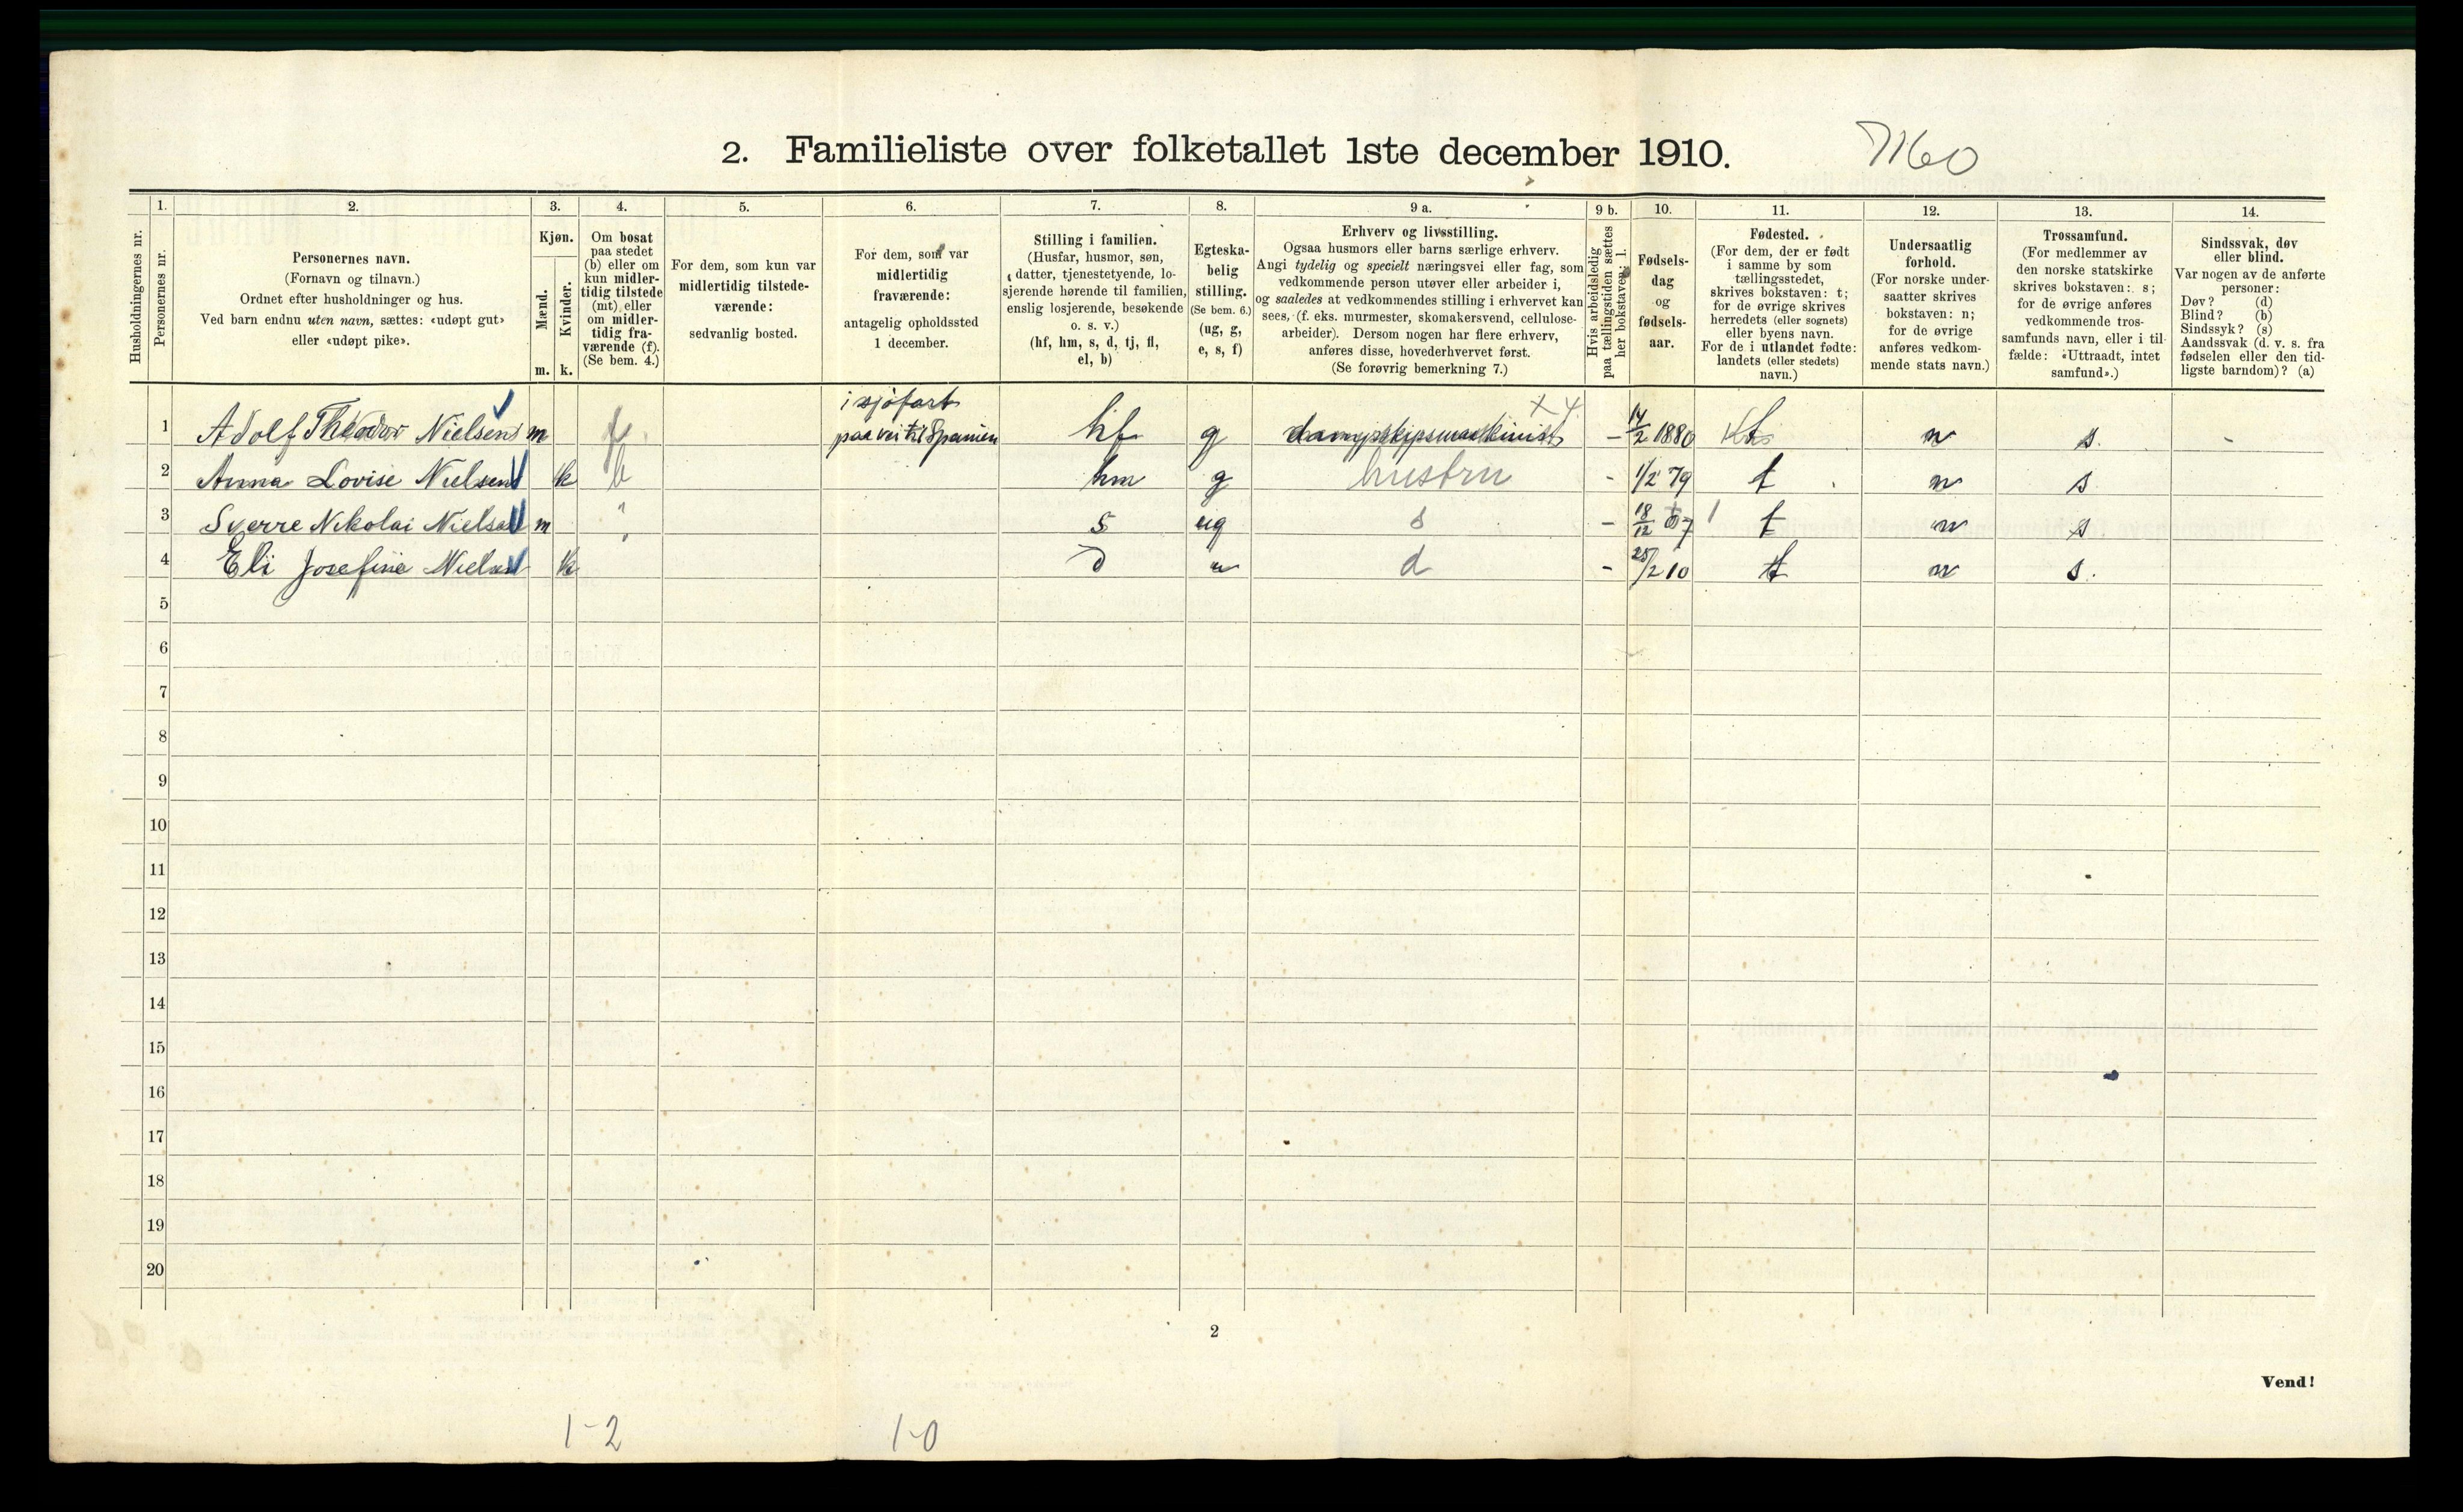 2. Familieliste over folketallet 1ste december 1910.
7160
Husholdningernes nr.
1.
Personernes nr.
2.
Personernes navn.
(Fornavn og tilnavn.)
Ordnet efter husholdninger og hus.
Ved barn endnu uten navn, sættes: «udøpt gut»
eller «udøpt pike».
3.
Kjøn.
Mænd.
Kvinder.
m. k.
4.
Om bosat
paa stedet
(b) eller om
kun midler-
tidig tilstede
(mt) eller
om midler-
tidig fra-
værende (f).
(Se bem. 4.)
5.
For dem, som kun var
midlertidig tilstede-
værende:
sedvanlig bosted.
6.
For dem, som var
midlertidig
fraværende:
antagelig opholdssted
1 december.
7.
Stilling i familien.
(Husfar, husmor, søn,
datter, tjenestetyende, lo-
sjerende hørende til familien,
enslig losjerende, besøkende
o. s. v.)
(hf, hm, s, d, tj, fl,
el, b)
8.
Egteska-
belig
stilling.
(Se bem. 6.)
(ug, g,
e, s, f)
9 a.
Erhverv og livsstilling.
Ogsaa husmors eller barns særlige erhverv.
Angi tydelig og specielt næringsvei eller fag, som
vedkommende person utøver eller arbeider i,
og saaledes at vedkommendes stilling i erhvervet kan
sees, (f. eks. murmester, skomakersvend, cellulose-
arbeider). Dersom nogen har flere erhverv,
anføres disse, hovederhvervet først.
(Se forøvrig bemerkning 7.)
9 b.
Hvis arbeidsledig
paa tællingstiden sættes
her bokstaven: l.
10.
Fødsels-
dag
og
fødsels-
aar.
11.
Fødested.
(For dem, der er født
i samme by som
tællingsstedet,
skrives bokstaven: t;
for de øvrige skrives
herredets (eller sognets)
eller byens navn.
For de i utlandet fødte:
landets (eller stedets)
navn.)
12.
Undersaatlig
forhold.
(For norske under-
saatter skrives
bokstaven: n;
for de øvrige
anføres vedkom-
mende stats navn.)
13.
Trossamfund.
(For medlemmer av
den norske statskirke
skrives bokstaven: s;
for de øvrige anføres
vedkommende tros-
samfunds navn, eller i til-
fælde: «Uttraadt, intet
samfund».)
14.
Sindssvak, døv
eller blind.
Var nogen av de anførte
personer:
Døv? (d)
Blind? (b)
Sindssyk? (s)
Aandssvak (d. v. s. fra
fødselen eller den tid-
ligste barndom)? (a)
i sjøfart
1 Adolf Theodor Nielsen m f paa vei til Spanien hf g dampskipsmaskinist - 14/2 1880 n s. -
2 Anna Lovise Nielsen k b hm g hustru - 1/2 79 t n s
3 Sverre Nikolai Nielsen m " s ug s - 18/12 07 t n s
4 Eli Josefine Nielsen k " d " d - 25/2 10 t n s.
5
6
7
8
9
10
11
12
13
14
15
16
17
18
19
20
2
Vend!
1-2 1-0